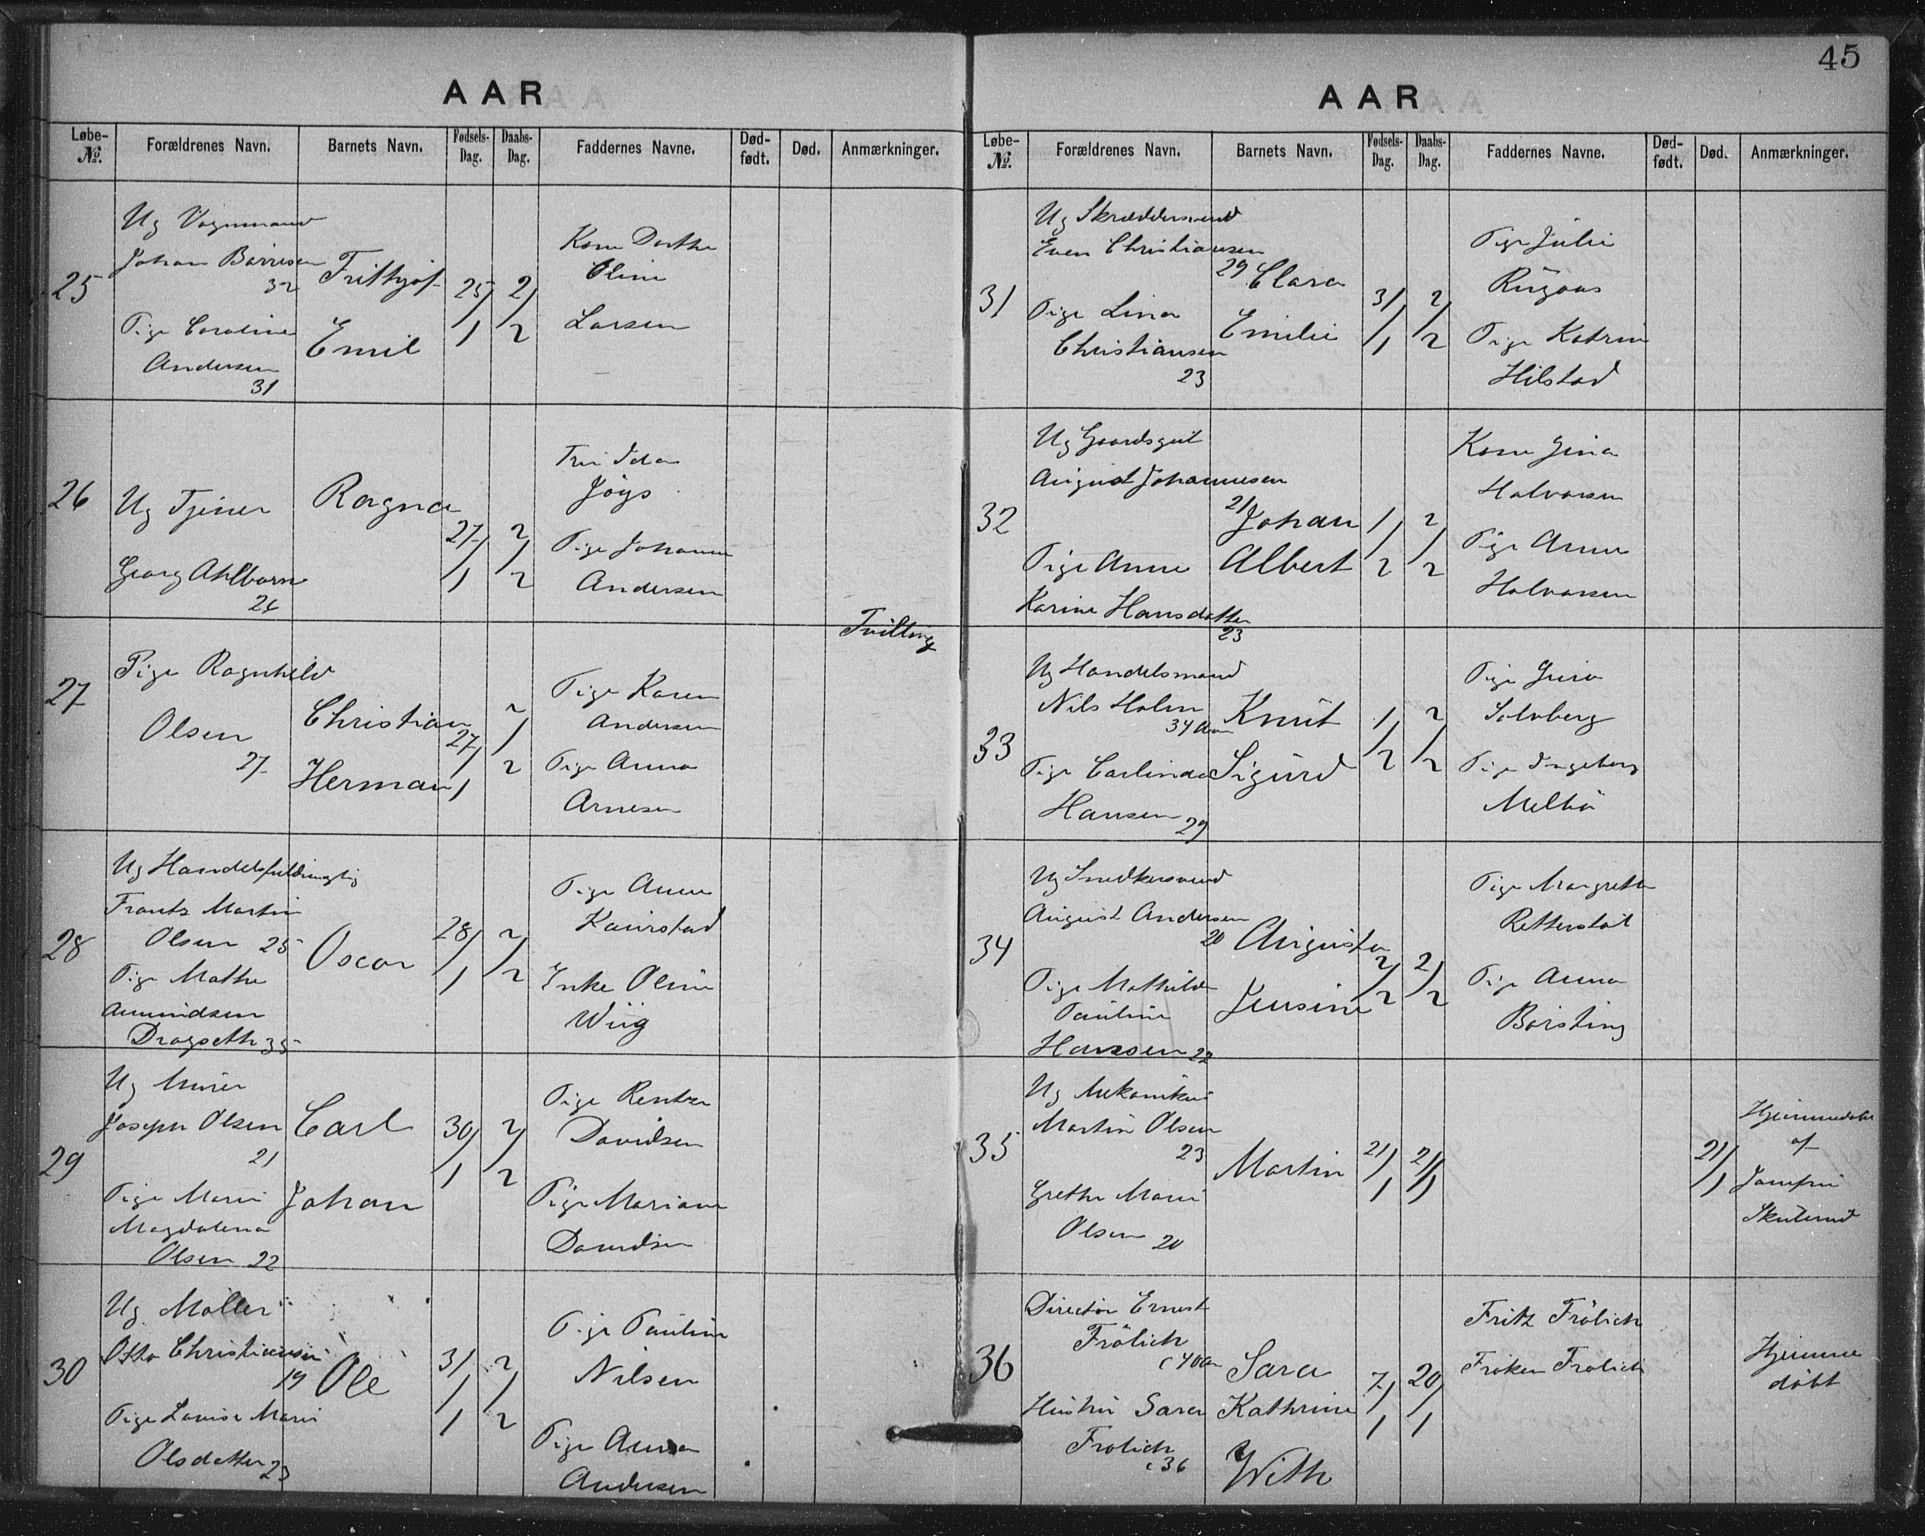 45
AAR
Løbe-No. Forældrenes Navn. Barnets Navn. Fødsels-Dag. Daabs-Dag. Faddernes Navne. Død-født. Død. Anmærkninger.
25
Ug Vognmand
Johan Børresen
32
Pige Caroline
Andersen
31
Frithjof
Emil
25/1
2/2
Kone Dorthe
Oline
Larsen
26
Ug Tjener
Georg Ahlborn
26
Ragna
27/1
2/2
Fru Ida
Pige Johanne
Andersen
Tvilling
27
Pige Ragnhild
Olsen
27
Christian
Herman
27/1
2/2
Pige Karen
Andersen
Pige Anna
Arnesen
28
Ug Handelsfuldmægtig
Frantz Martin
Olsen 25
Pige Mathe
Amundsen
Dragseth 35
Oscar
28/1
2/2
Pige Anne
Kaurstad
Enke Oline
Wiig
29
Ug Murer
Joseph Olsen
21
Pige Marie
Magdalena
Olsen 22
Carl
Johan
30/1
2/2
Pige
Davidsen
Pige Mariane
Davidsen
30
Ug Møller
Otto Christiansen
19
Pige Lovise Marie
Olsdatter 23
Ole
31/1
2/2
Pige Pauline
Nilsen
Pige Anna
Andersen
AAR
Løbe-No. Forældrenes Navn. Barnets Navn. Fødsels-Dag. Daabs-Dag. Faddernes Navne. Død-født. Død. Anmærkninger.
31
Ug Skræddersvend
Even Christiansen
29
Pige Lina
Christiansen
23
Clara
Emilie
31/1
2/2
Pige Julie
Pige Katrin
Hilstad
32
Ug Gaardsgut
August Johannesen
21
Pige Anne
Karine Hansdatter
23
Johan
Albert
1/2
2/2
Kone Gina
Halvorsen
Pige Anne
Halvorsen
33
Ug Handelsmand
Nils Holm
34 Aar
Pige Carlinda
Hansen 29
Knut
Sigurd
1/2
2/2
Pige Guro
Solvberg
Pige Ingeborg
Melbø
34
Ug Snedkersvend
August Andersen
20
Pige Mathilde
Pauline
Hansen 22
Augusta
Jensine
2/2
2/2
Pige Margrethe
Retterstøl
Pige Anna
Børsting
35
Ug Mekaniker
Martin Olsen
23
Grethe Marie
Olsen 20
Martin
21/1
21/1
21/1
Hjemmedøbt
af
Jomfru
Skulerud
36
Director Ernest
Frölich
c 40 Aar
Hustru Sara
Frölich
c 36
Sara
Kathrine
With
7/1
20/1
Fritz Frölich
Frøken Frölich
Hjemme
døbt